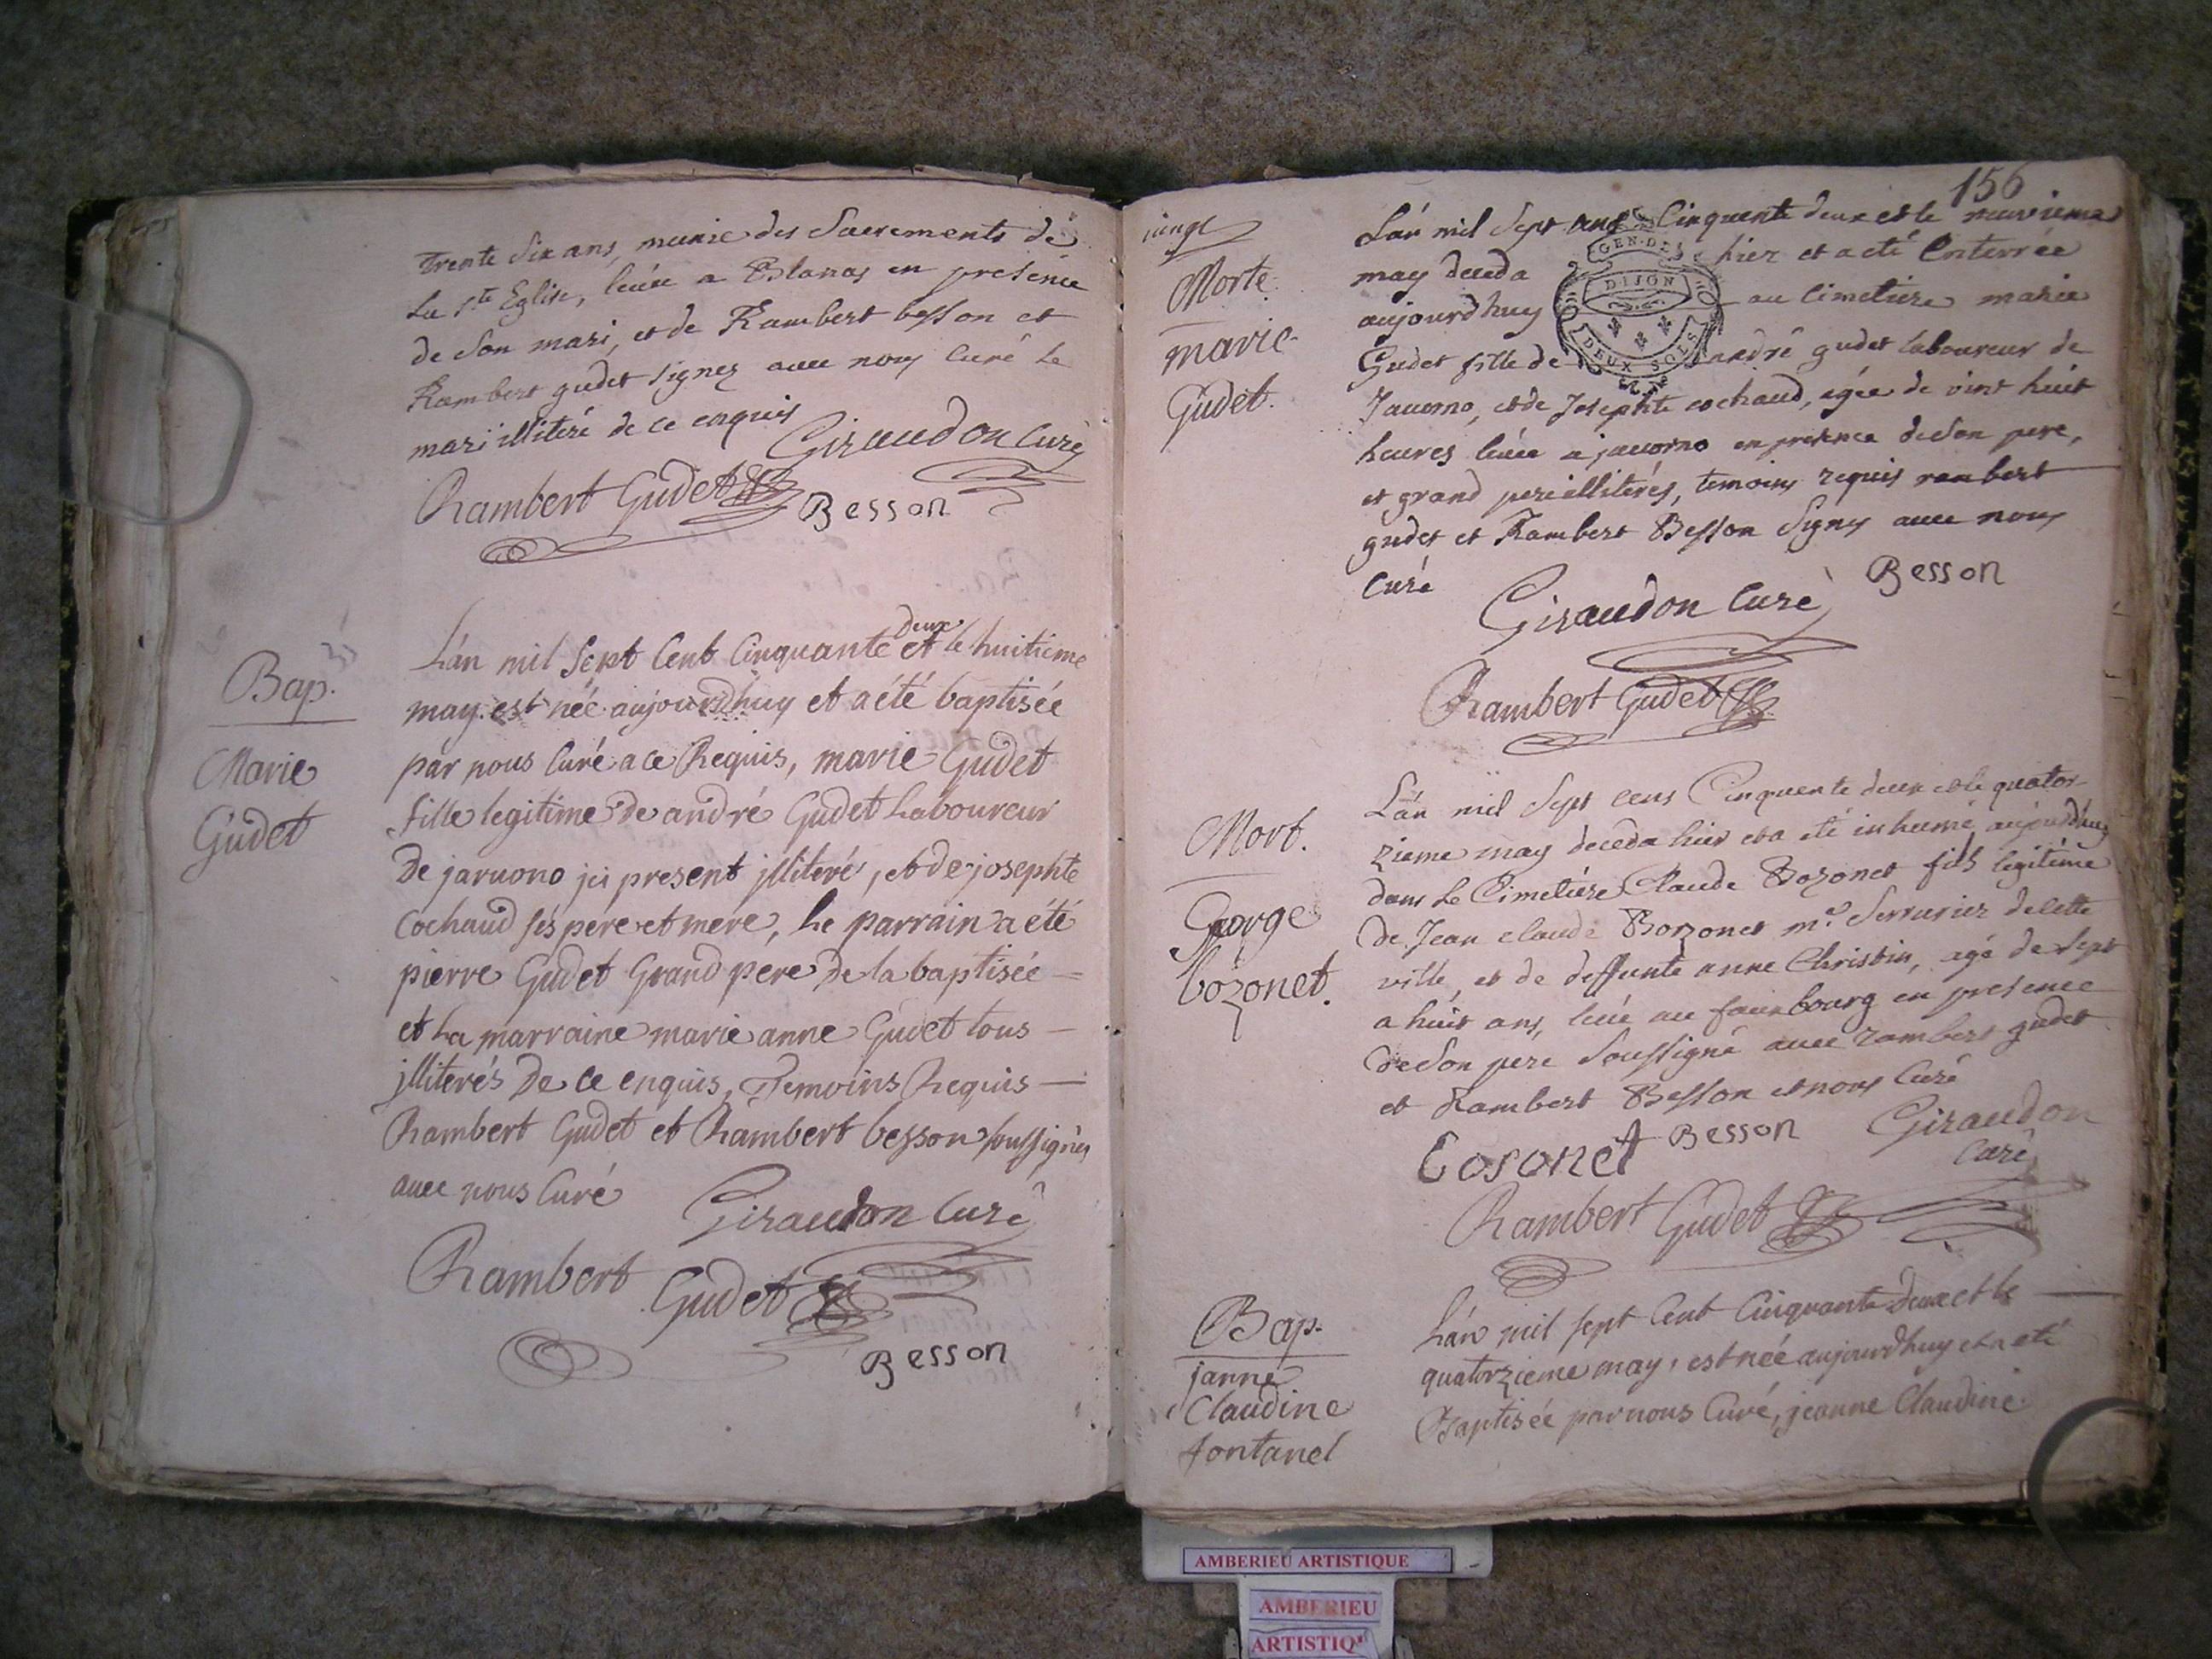 trente six ans, munie des Sacrements de
La Ste Eglise, leüée a Blanas en presence
de Son mari, et de Rambert besson et
Rambert gudet signez avec nous curé Le
mari illiteré de ce enquis
Giraudon Curé
Rambert Gudet
Besson
Bap.
Marie
Gudet
L'an mil Sept Cent Cinquante deux et le huitieme
may est née aujourdhuy et a été baptisée
par nous Curé a ce Requis, marie Gudet
fille legitime de andré Gudet Laboureur
De jaruono jci present jlliteré, et de josephte
Cochaud ses pere et mere, Le parrain a été
pierre Gudet Grand pere de la baptisée
et La marraine marie anne Gudet tous
jlliterés De ce enquis, Temoins Requis
Rambert Gudet et Rambert besson soussignés
avec nous Curé
Giraudon Curé
Rambert Gudet
Besson
156
Morte
marie
Gudet.
L'an mil Sept Cinquente deux et le neuvieme
may deceda hier et a eté Enterrée
aujourdhuy au Cimetiere marie
Gudet fille de andré gudet laboureur de
et de Josephte cochaud, agée de vint huit
heures leuée a en presence de Son pere,
et grand pere illiterés, temoins requis rambert
gudet et Rambert Besson Signés avec nous
Curé
GEN. DE
DIJON
DEUX SOLS
Besson
Giraudon Curé
Rambert Gudet
Mort.
George
bozonet.
L'an mil Sept cens Cinquente deux et le quator-
zieme may deceda hier et a eté inhumé aujourd'huy
dans Le Cimetiere Claude Bozonet fils legitime
de Jean claude Bozonet me. Serrurier de cette
ville, et de deffunte anne Christin, agé de sept
a huit ans, leüé au fauxbourg en presence
de Son pere Soussigné avec rambert gudet
et Rambert Besson et nous Curé
Bosonet
Besson
Giraudon
Curé
Rambert Gudet
Bap.
janne
Claudine
fontanel
L'an mil sept Cent Cinquante Deux et le
quatorzieme may, est née aujourdhuy et a eté
Baptisée par nous Curé, jeanne Claudine
AMBERIEU ARTISTIQUE
AMBERIEU
ARTISTIQ